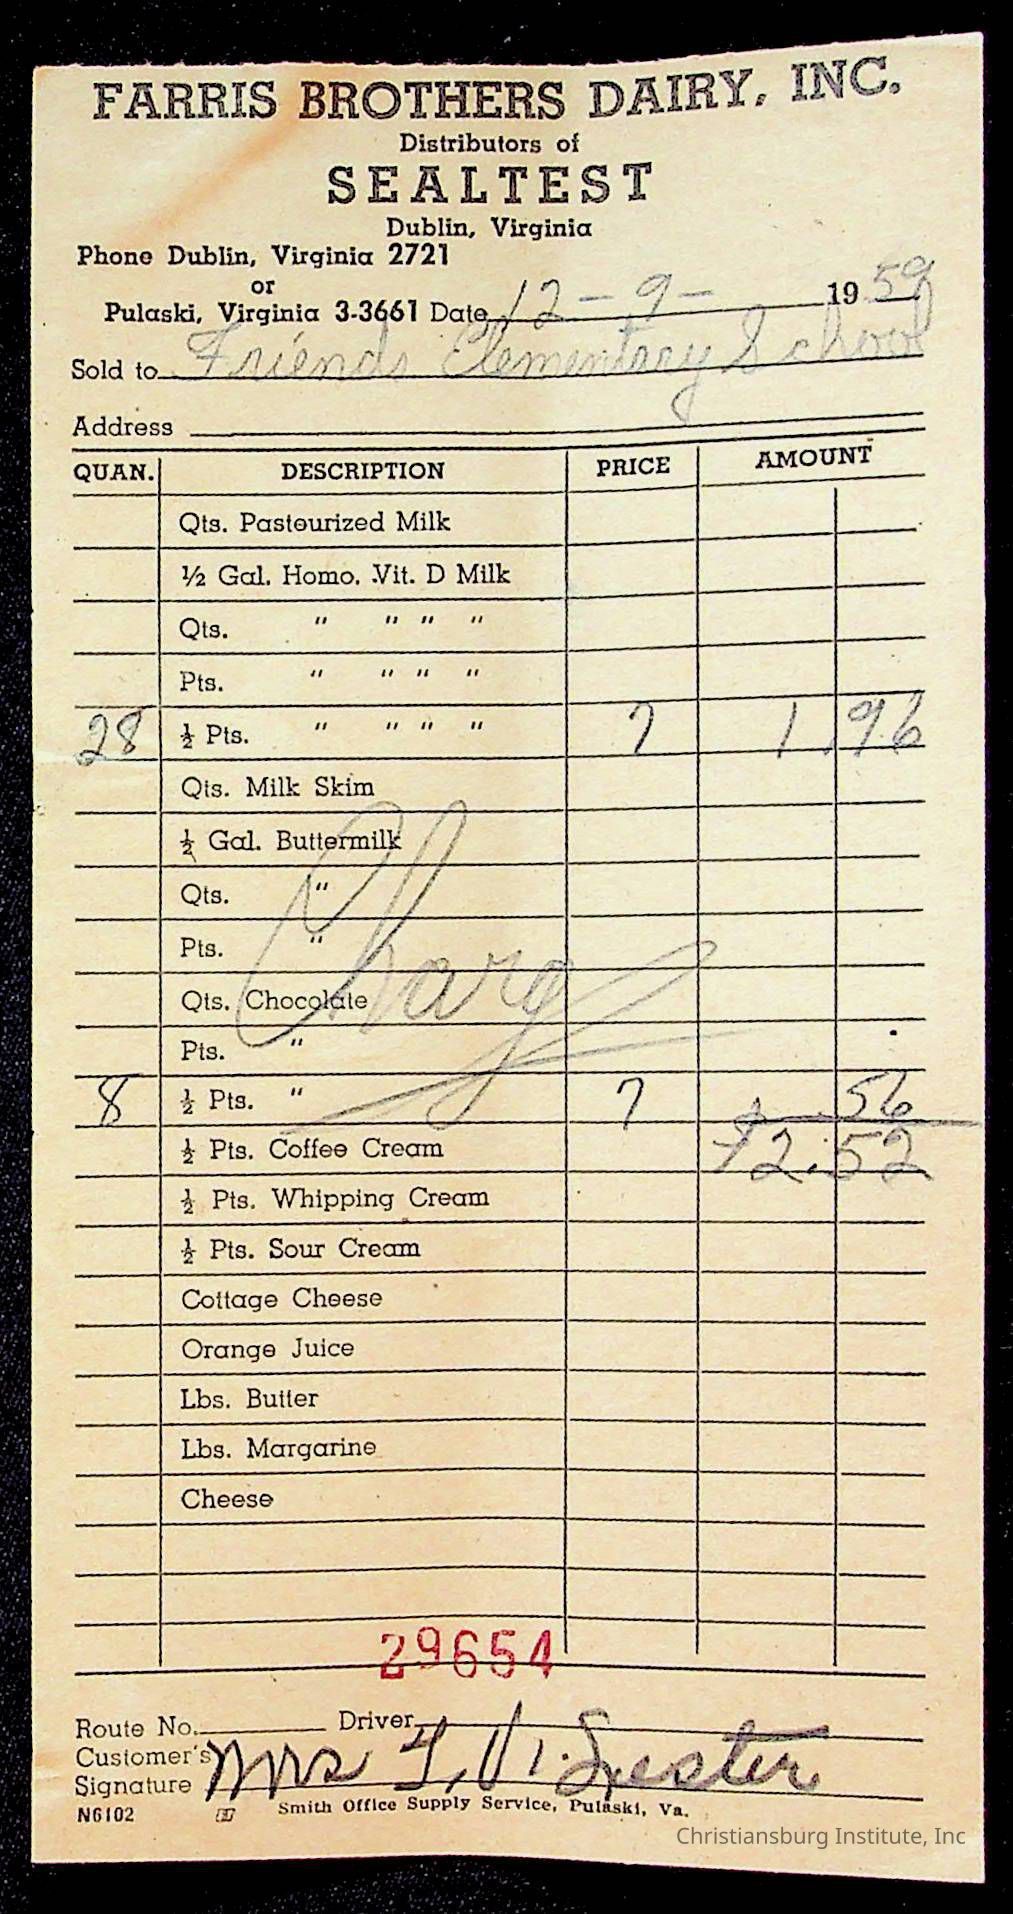 FARRIS BROTHERS DAIRY, INC.
Distributors of
SEALTEST
Dublin, Virginia
Phone Dublin, Virginia 2721
or
Pulaski, Virginia 3-3661 Date 12-9- 1959
Sold to Friends Elementary School
Address
QUAN. DESCRIPTION PRICE AMOUNT
Qts. Pasteurized Milk
½ Gal. Homo. Vit. D Milk
Qts. " " " "
Pts. " " " "
28 ½ Pts. " " " " 7 1.96
Qts. Milk Skim
½ Gal. Buttermilk
Qts. "
Pts. "
Charg
Qts. Chocolate
Pts. "
8 ½ Pts. " 7 .56
½ Pts. Coffee Cream $2.52
½ Pts. Whipping Cream
½ Pts. Sour Cream
Cottage Cheese
Orange Juice
Lbs. Butter
Lbs. Margarine
Cheese
29654
Route No. Driver
Customer's
Signature Mrs
N6102 Smith Office Supply Service, Pulaski, Va.
Christiansburg Institute, Inc